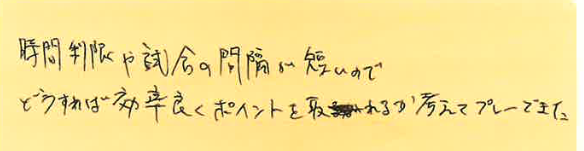 時間制限や試合の間隔が短いので
どうすれば効率良くポイントを取れるか考えてプレーできた